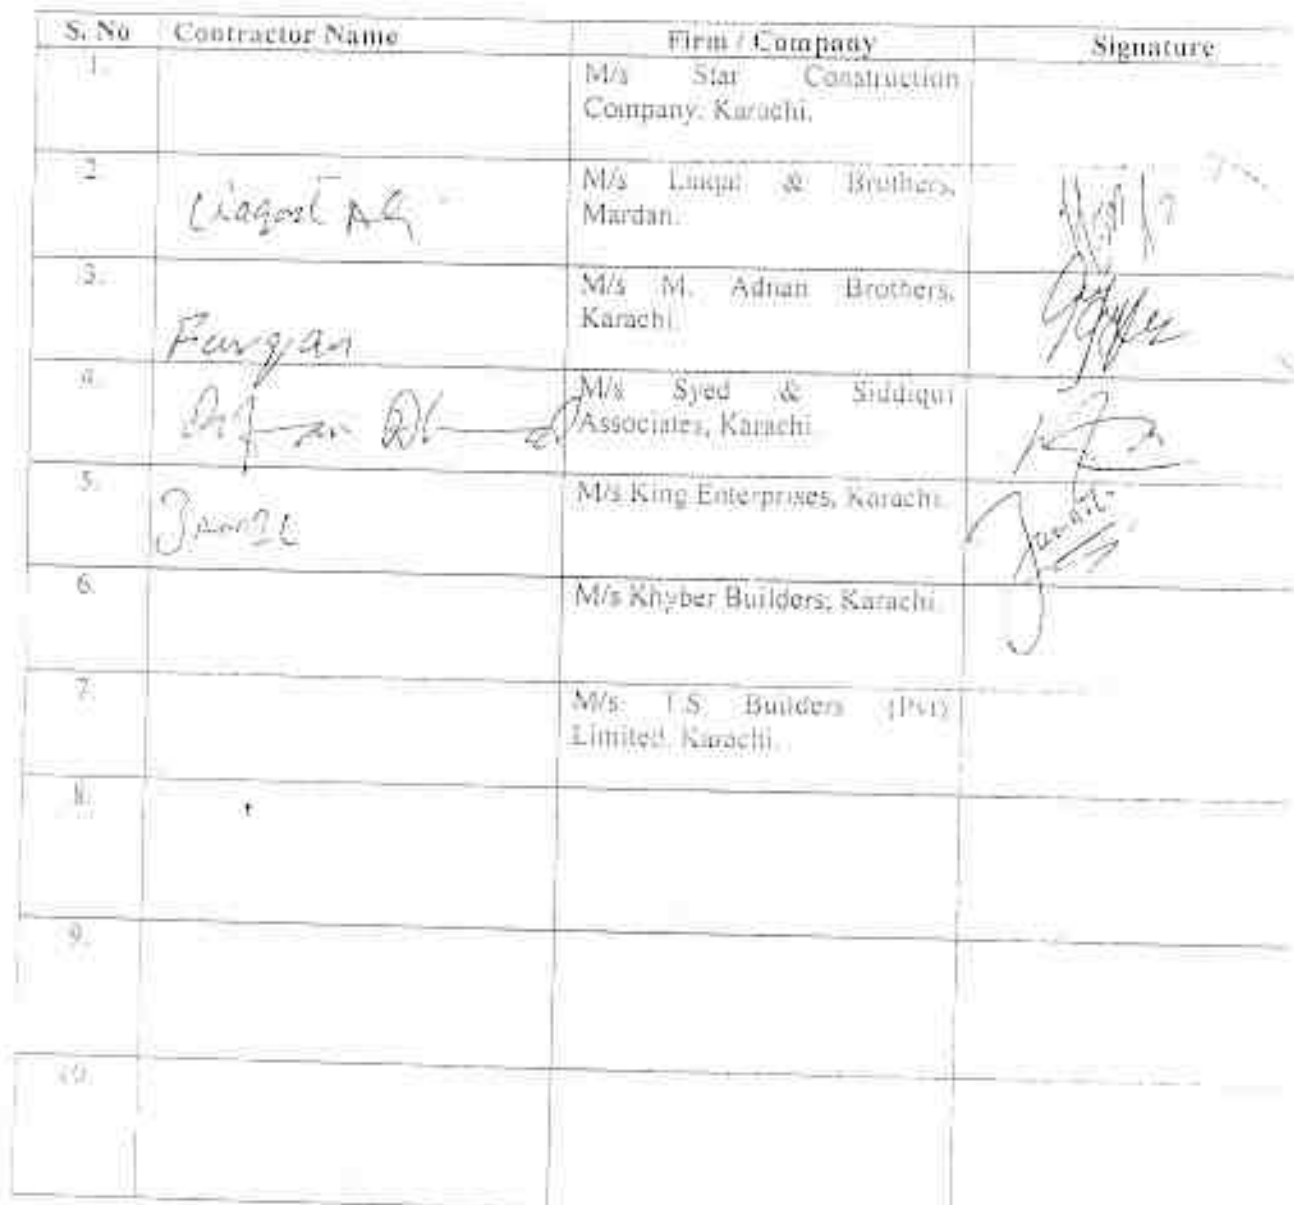 S. No Contractor Name Firm / Company Signature
1. M/s Star Construction
Company, Karachi.
2. Liaqat Ali M/s Liaqat & Brothers,
Mardan.
3. M/s M. Adnan Brothers,
Furqan Karachi.
4. M/s Syed & Siddiqui
Associates, Karachi
5. M/s King Enterprises, Karachi.
Jamil Jamil
6. M/s Khyber Builders, Karachi.
7. M/s Builders (Pvt)
Limited, Karachi.
8.
9.
10.